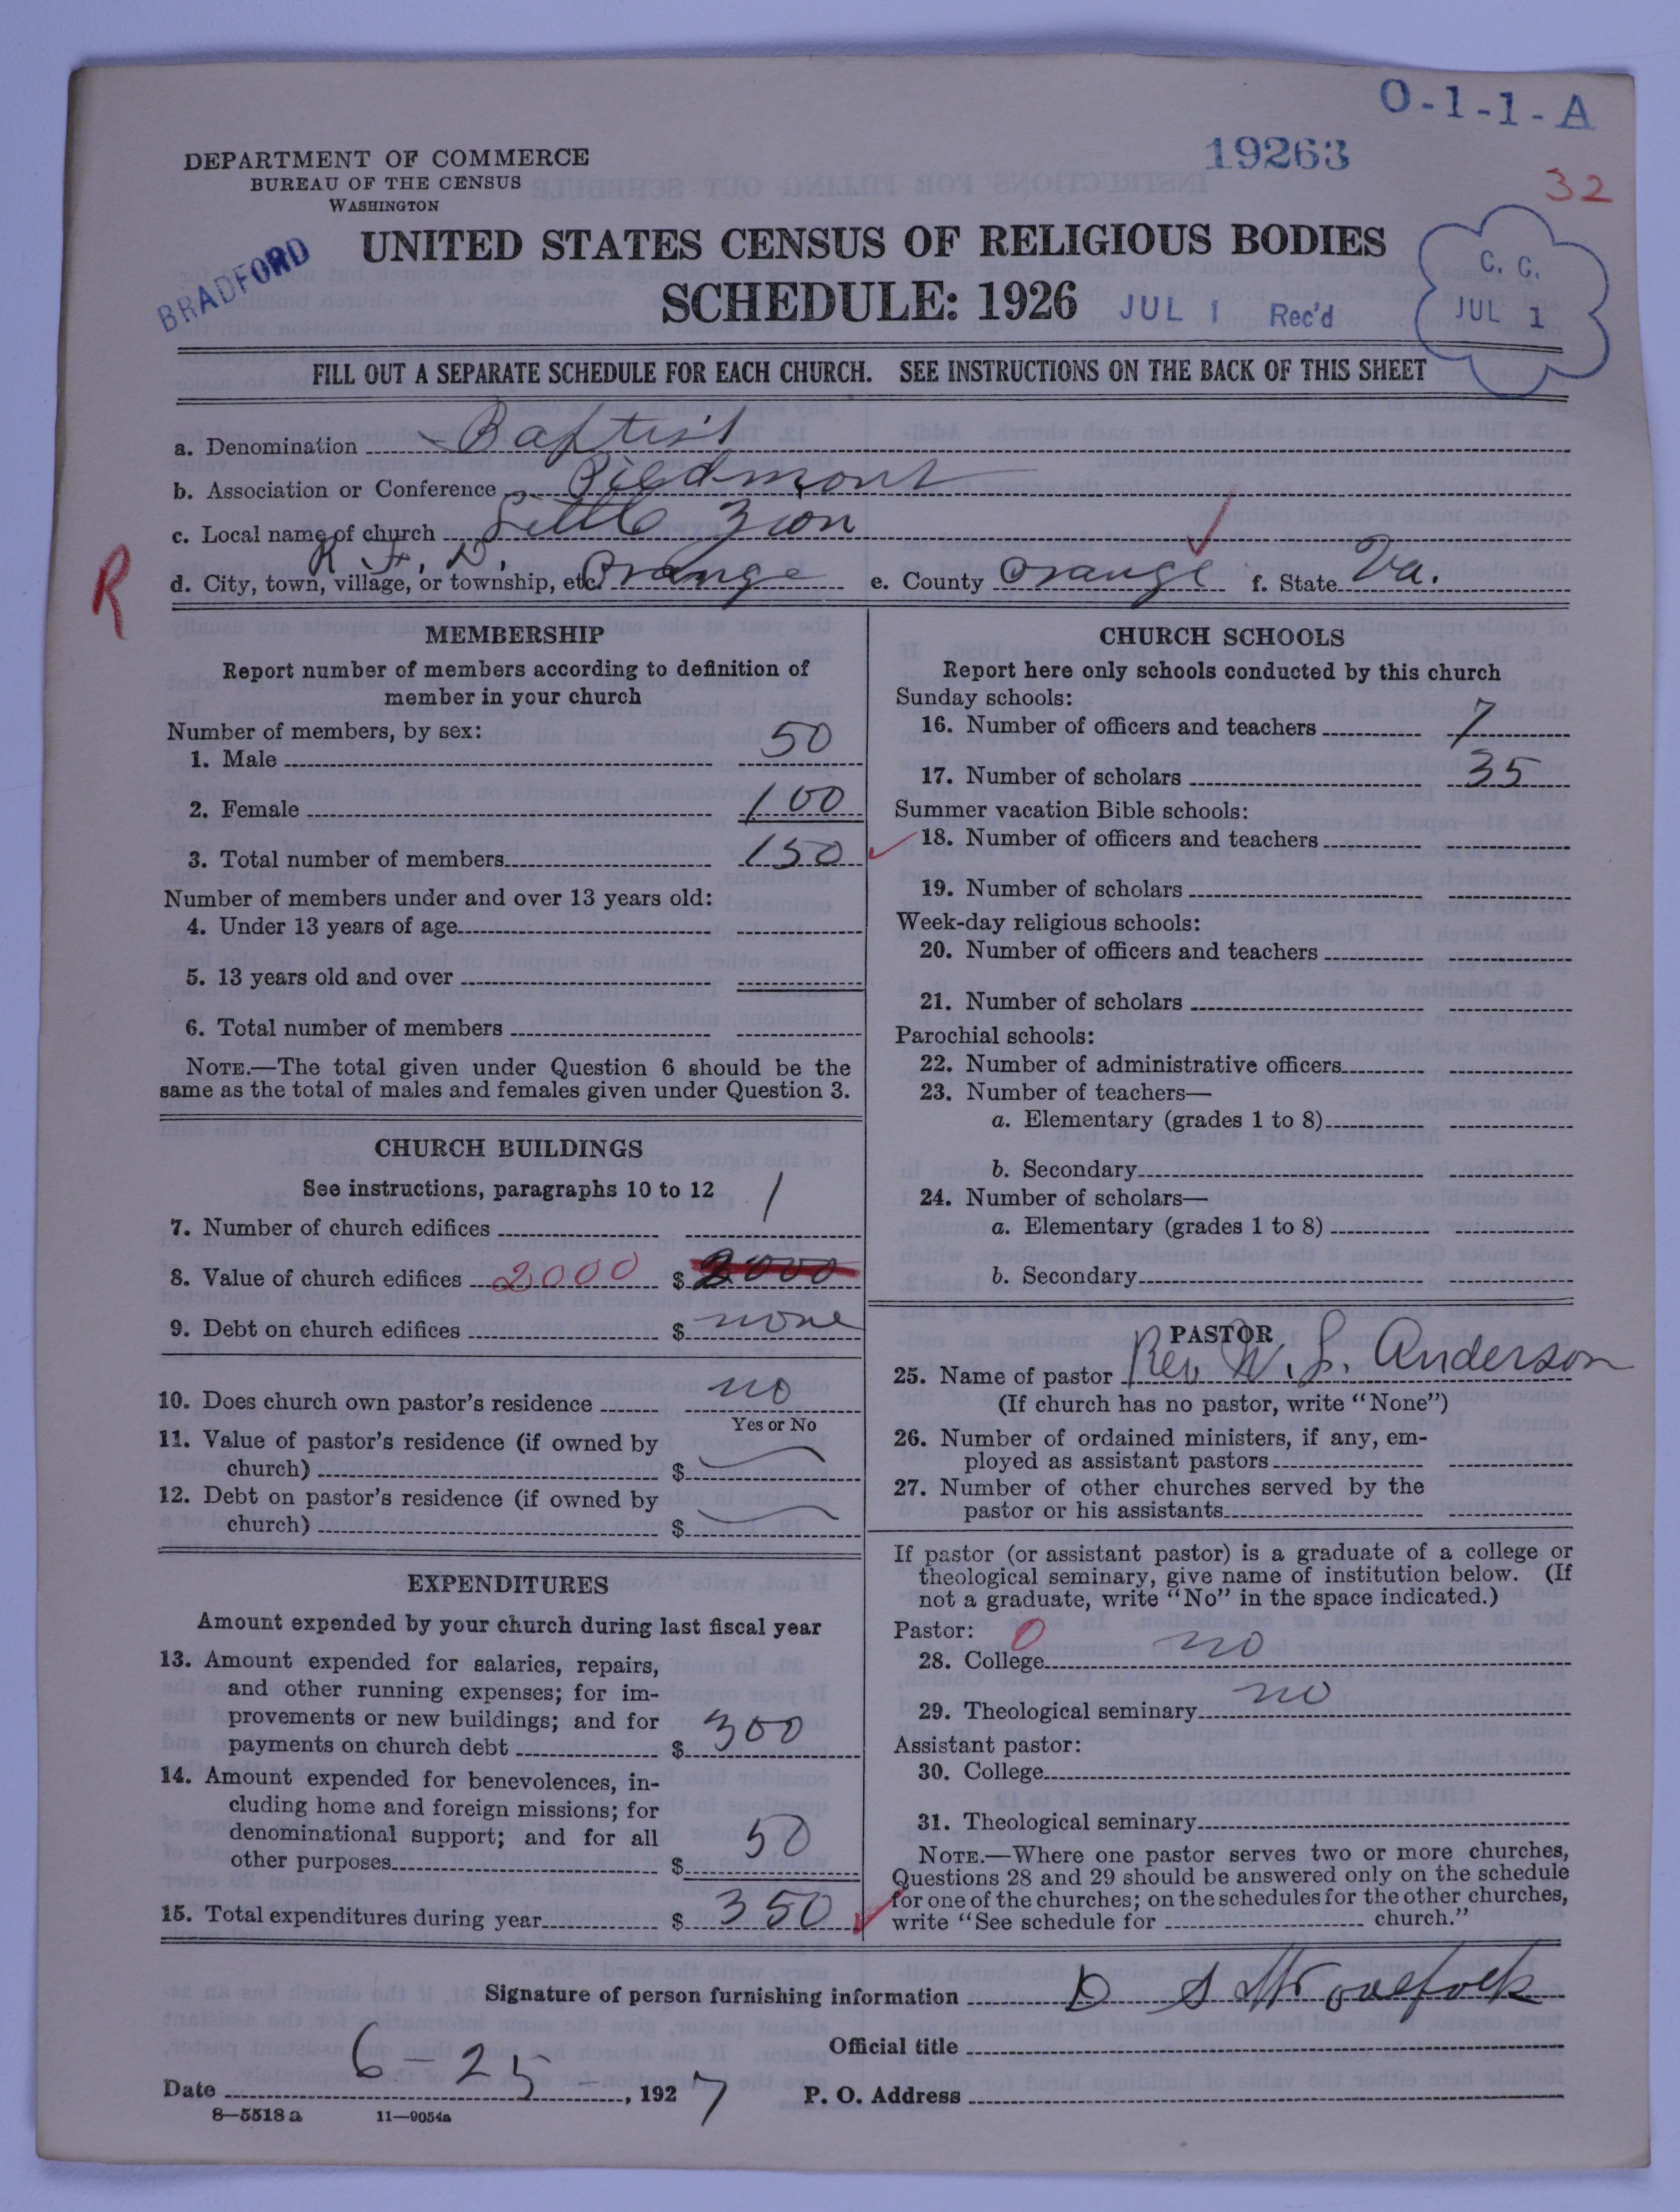 O-1-1-A
19263
32
DEPARTMENT OF COMMERCE
BUREAU OF THE CENSUS
WASHINGTON
BRADFORD
UNITED STATES CENSUS OF RELIGIOUS BODIES
SCHEDULE: 1926
JUL 1 Rec'd
C. C.
JUL 1
FILL OUT A SEPARATE SCHEDULE FOR EACH CHURCH. SEE INSTRUCTIONS ON THE BACK OF THIS SHEET
a. Denomination Baptist
b. Association or Conference Piedmont
c. Local name of church Little Zion
R. F. D.
d. City, town, village, or township, etc. Orange e. County Orange f. State Va.
R
MEMBERSHIP
Report number of members according to definition of
member in your church
Number of members, by sex:
1. Male 50
2. Female 100
3. Total number of members 150
Number of members under and over 13 years old:
4. Under 13 years of age
5. 13 years old and over
6. Total number of members
NOTE.—The total given under Question 6 should be the
same as the total of males and females given under Question 3.
CHURCH BUILDINGS
See instructions, paragraphs 10 to 12
7. Number of church edifices 1
8. Value of church edifices 2000 $ 2000
9. Debt on church edifices $ none
10. Does church own pastor's residence no
Yes or No
11. Value of pastor's residence (if owned by
church) $
12. Debt on pastor's residence (if owned by
church) $
EXPENDITURES
Amount expended by your church during last fiscal year
13. Amount expended for salaries, repairs,
and other running expenses; for im-
provements or new buildings; and for
payments on church debt $ 300
14. Amount expended for benevolences, in-
cluding home and foreign missions; for
denominational support; and for all
other purposes $ 50
15. Total expenditures during year $ 350
CHURCH SCHOOLS
Report here only schools conducted by this church
Sunday schools:
16. Number of officers and teachers 7
17. Number of scholars 35
Summer vacation Bible schools:
18. Number of officers and teachers
19. Number of scholars
Week-day religious schools:
20. Number of officers and teachers
21. Number of scholars
Parochial schools:
22. Number of administrative officers
23. Number of teachers—
a. Elementary (grades 1 to 8)
b. Secondary
24. Number of scholars—
a. Elementary (grades 1 to 8)
b. Secondary
PASTOR
25. Name of pastor Rev. W. S. Anderson
(If church has no pastor, write "None")
26. Number of ordained ministers, if any, em-
ployed as assistant pastors
27. Number of other churches served by the
pastor or his assistants
If pastor (or assistant pastor) is a graduate of a college or
theological seminary, give name of institution below. (If
not a graduate, write "No" in the space indicated.)
Pastor: 0
28. College no
29. Theological seminary no
Assistant pastor:
30. College
31. Theological seminary
NOTE.—Where one pastor serves two or more churches,
Questions 28 and 29 should be answered only on the schedule
for one of the churches; on the schedules for the other churches,
write "See schedule for church."
Signature of person furnishing information D S
Official title
Date 6-25-, 1927 P. O. Address
8—5518 a 11—9054a